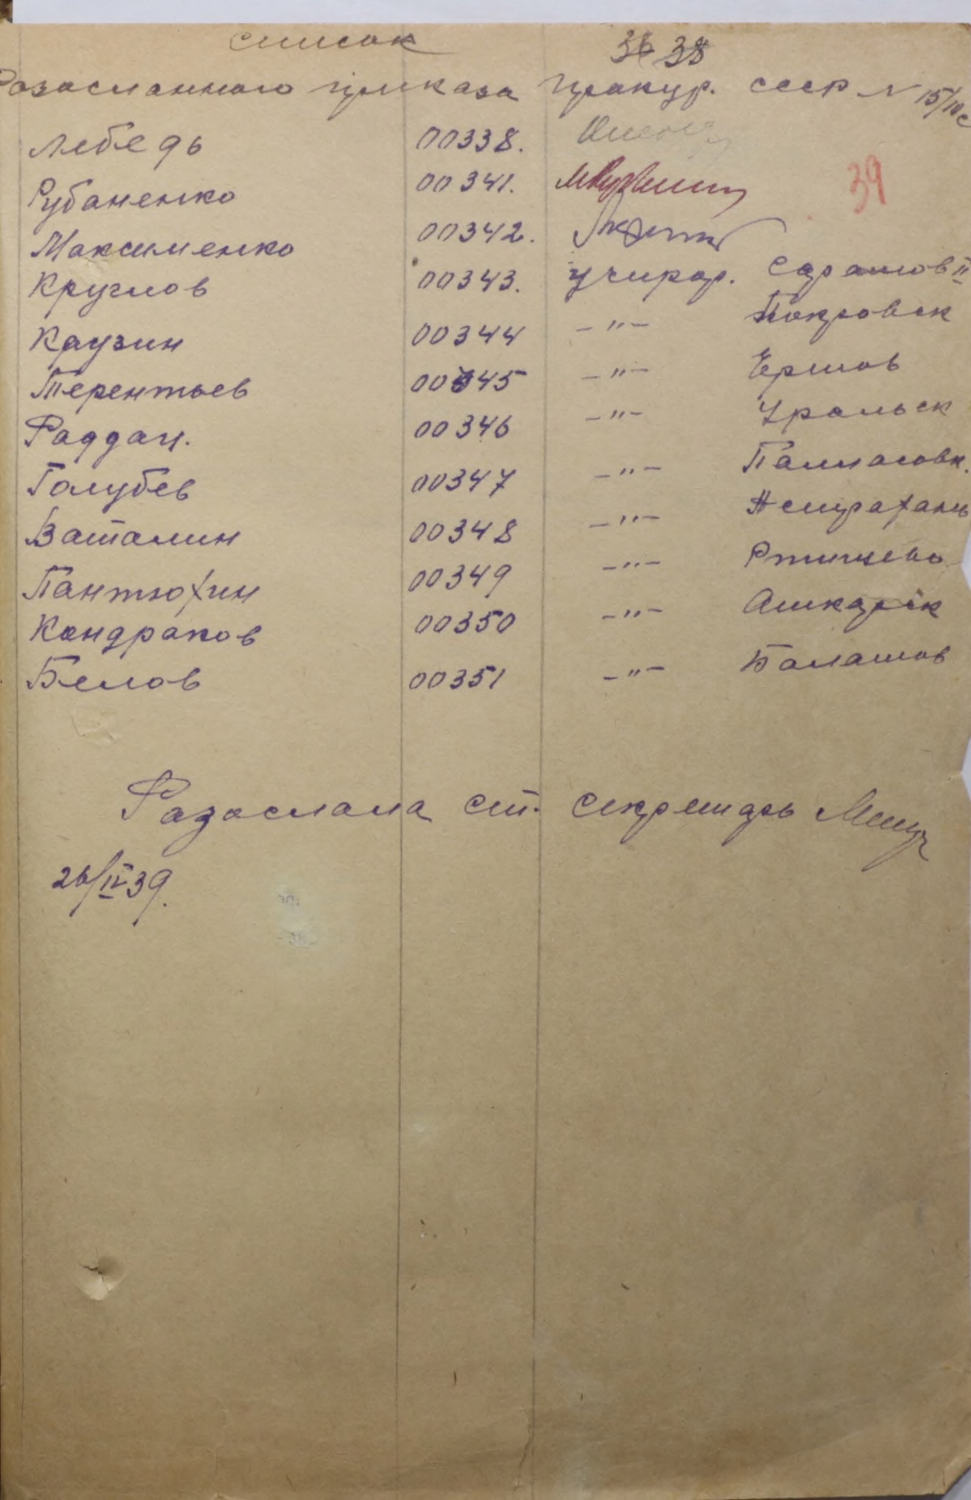 список 36 38
Разосланного приказа Прокур. СССР N 15/10с
Лебедь 00338.
39
Рубаненко 00341.
Максименко 00342.
Круглов 00343. учпрор. Саратов II
Каузин 00344 -"- Покровск
Терентьев 00345 -"- Ершов
Раддац. 00346 -"- Уральск
Голубев 00347 -"- Палласовк.
Ваталин 00348 -"- Астрахань
Пантюхин 00349 -"- Ртищево
Кондраков 00350 -"- Аткарск
Белов 00351 -"- Балашов
Разослала ст. секретарь
26/IV 39.